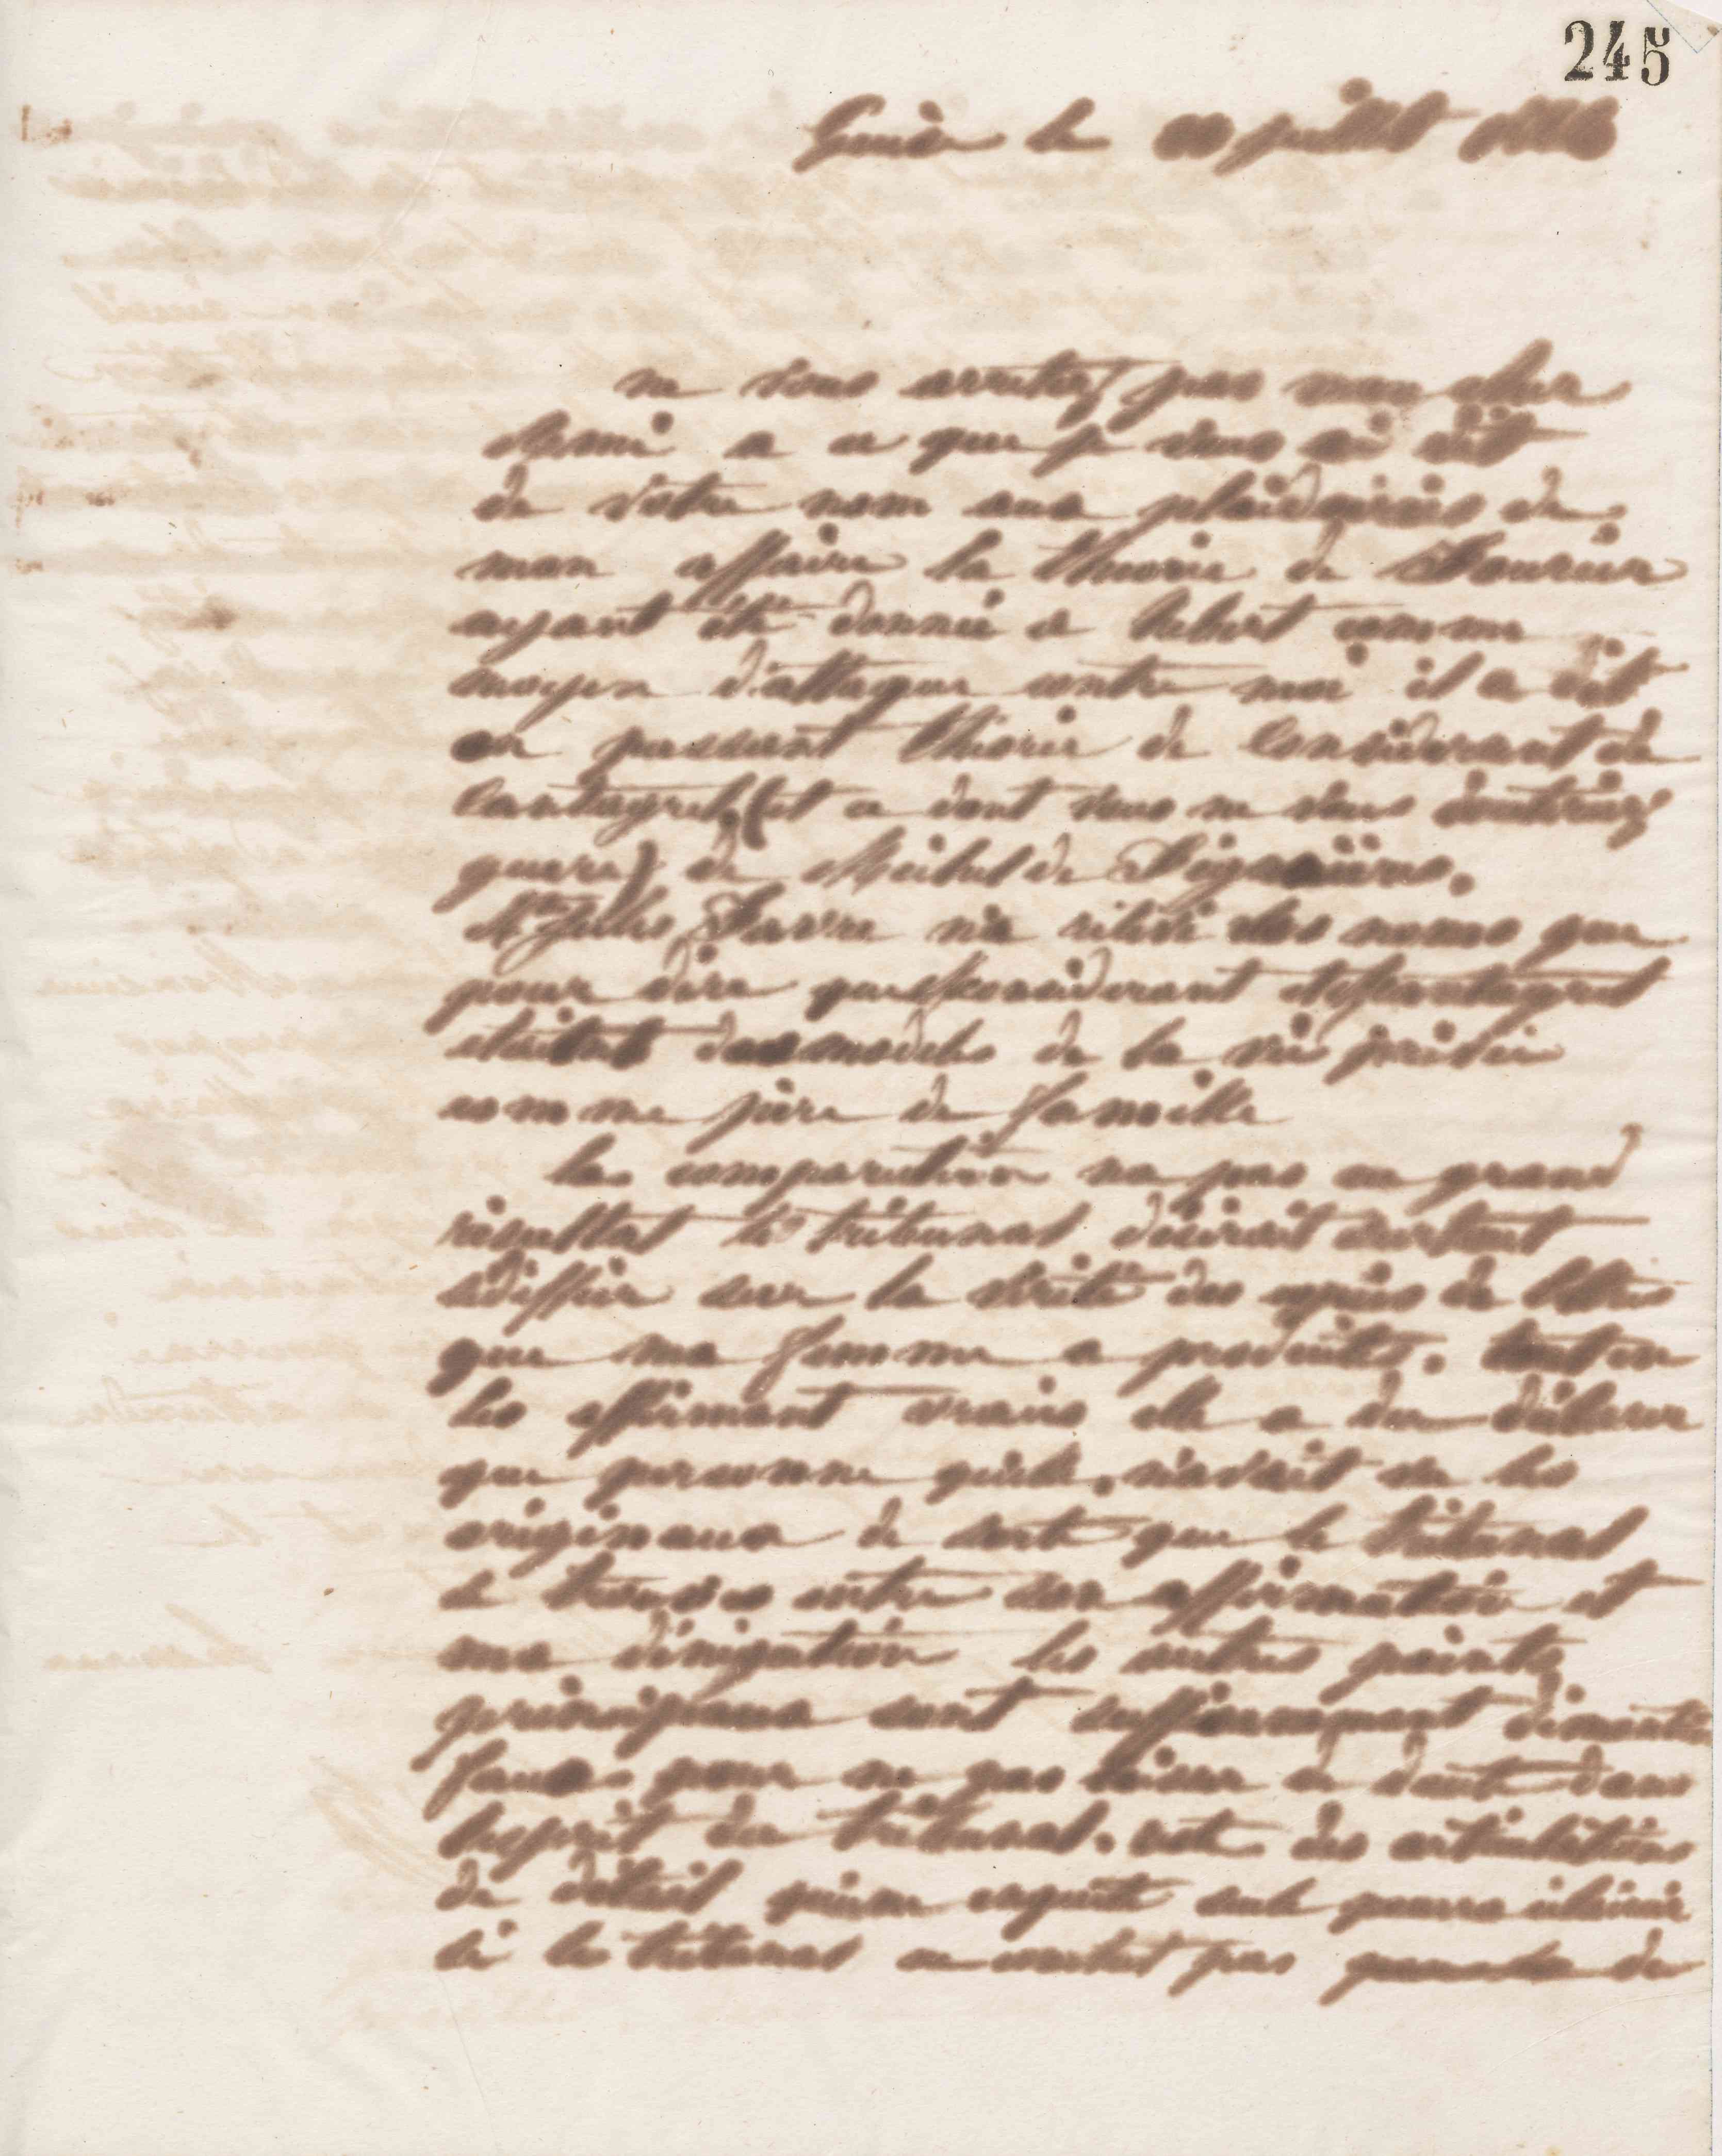 245
Guise le juillet
ne vous arretez pas mon cher
a ce que je vous ai dit
de votre nom aux plaidoiries de
mon affaire la theorie de Fourier
ayant été donnée a hebert comme
moyen d'attaque contre moi il a dit
en passant théorie de Considerant de
Cantagrel (et ce dont vous ne vous
guere) de
Mr Jules Favre n'a relevé des noms que
pour dire que Considerant et Cantagrel
etaient des modeles de la vie privée
comme père de famille
La comparution na pas eu grand
resultat le tribunal désirait surtout
sediffier sur la vérité des copies de lettres
que ma femme a produites. tout en
les affirmant vraies elle a du déclarer
que personne qu'elle n'avait vu les
originaux de sorte que le tribunal
se trouve entre son affirmation et
ma dénégation les autres points
principaux sont suffisamment
faux pour ne pas laisser de doute dans
lesprit du tribunal. reste des articulations
de détail quune enquete seule pourra
si le tribunal en de